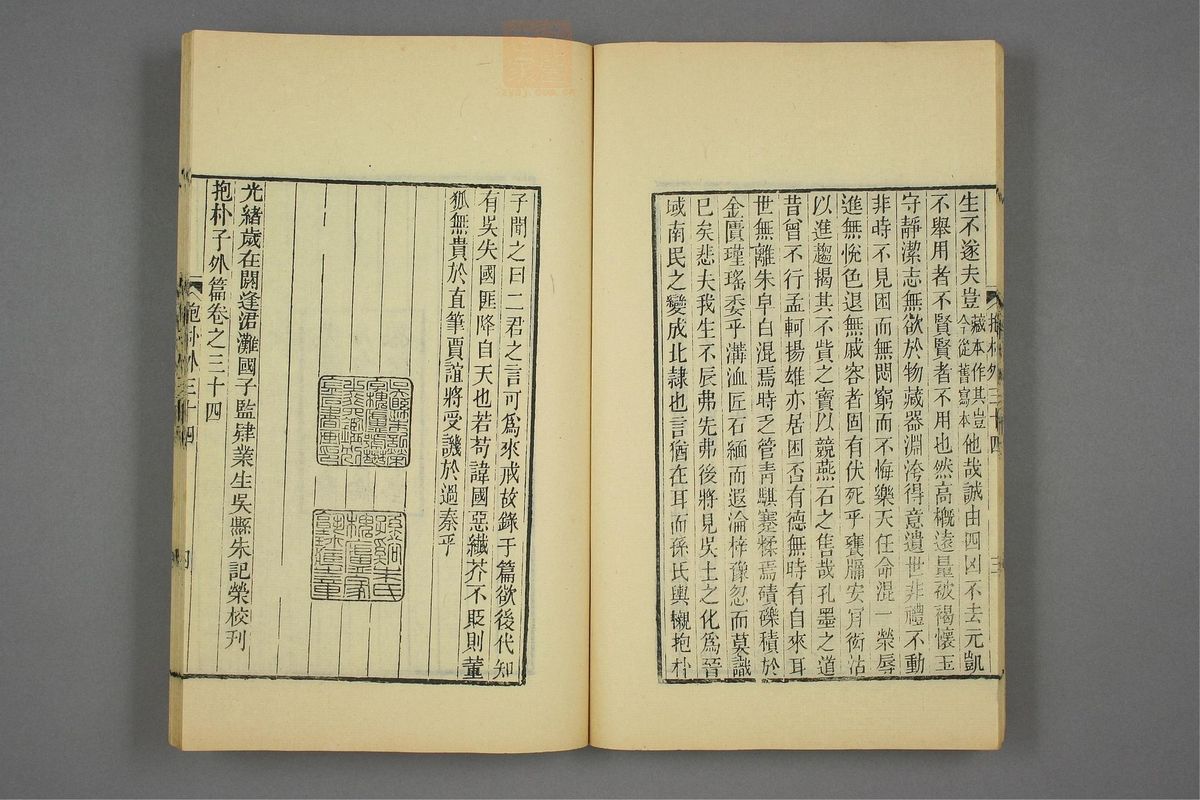 抱朴外三十四　三
生不遂夫豈藏本作其豈今從舊寫本他哉誠由四凶不去元凱
不舉用者不賢賢者不用也然高概遠量被褐懷玉
守靜潔志無欲於物藏器淵洿得意遺世非禮不動
非時不見困而無悶窮而不悔樂天任命混一榮辱
進無悅色退無戚容者固有伏死乎甕牖安肎衒沽
以進趨揭其不貲之寶以競燕石之售哉孔墨之道
昔曾不行孟軻揚雄亦居困否有德無時有自來耳
世無離朱皁白混焉時乏管靑騏蹇糅焉磧礫積於
金匱瑾瑤委乎溝洫匠石緬而遐淪梓豫忽而莫識
已矣悲夫我生不辰弗先弗後將見吳土之化爲晉
域南民之變成北隸也言猶在耳而孫氏輿櫬抱朴
子聞之曰二君之言可爲來戒故錄于篇欲後代知
有吳失國匪降自天也若苟諱國惡纖芥不貶則董
狐無貴於直筆賈誼將受譏於過秦乎
光緒歲在閼逢涒灘國子監肄業生吳縣朱記榮校刊
抱朴子外篇卷之三十四
抱朴外三十四　四